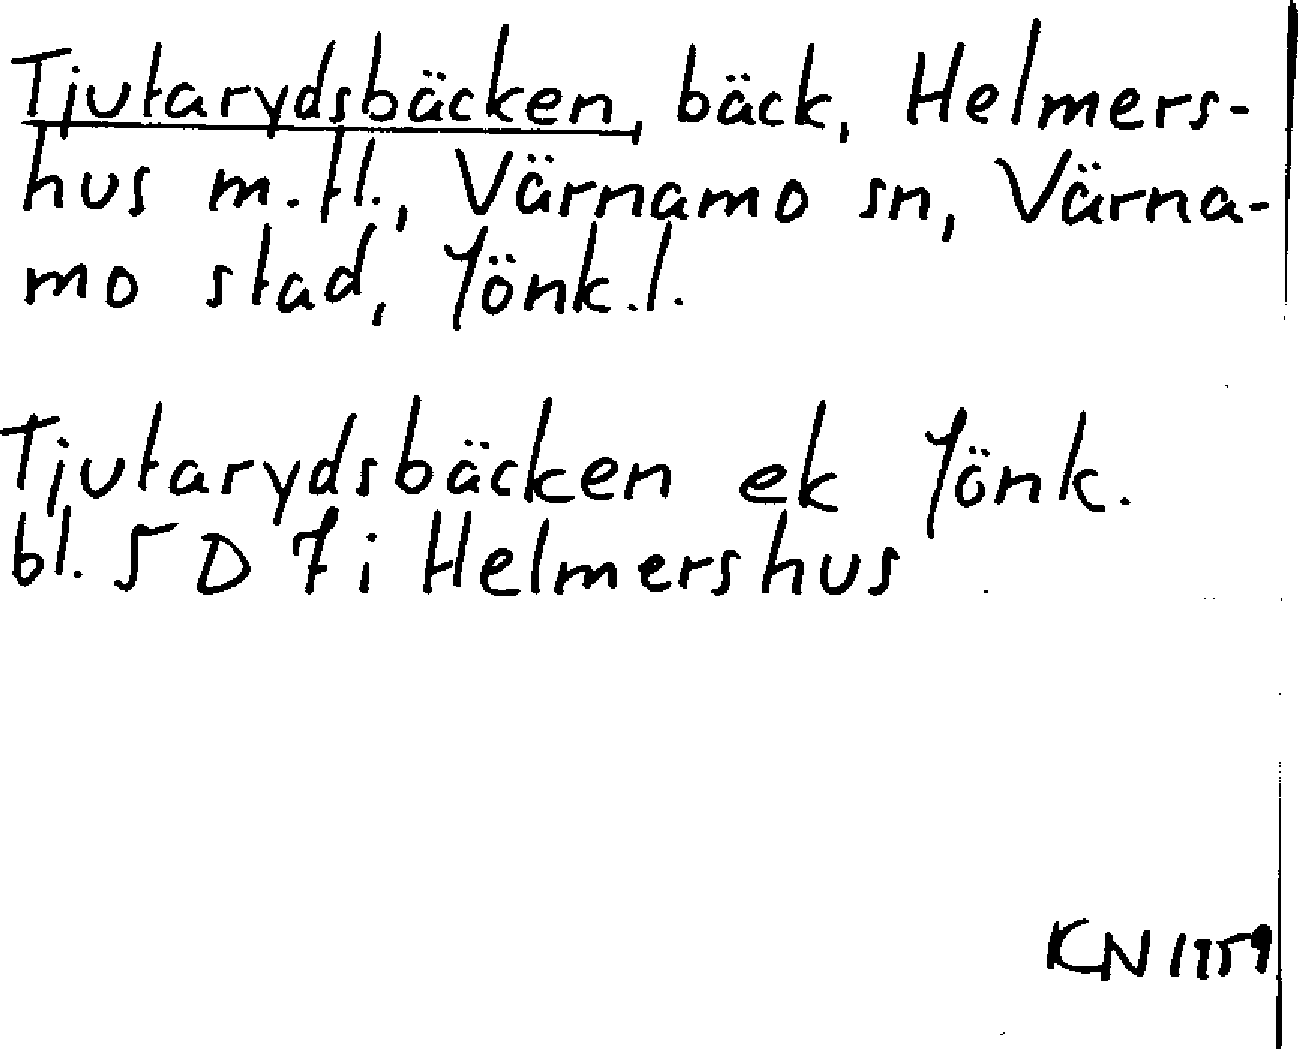 Tjutarydsbäcken, bäck, Helmers-
hus m.fl., Värnamo sn, Värna-
mo stad, Jönk.l.
Tjutarydsbäcken ek Jönk.
bl. 5 D 7 i Helmershus
KN 1959